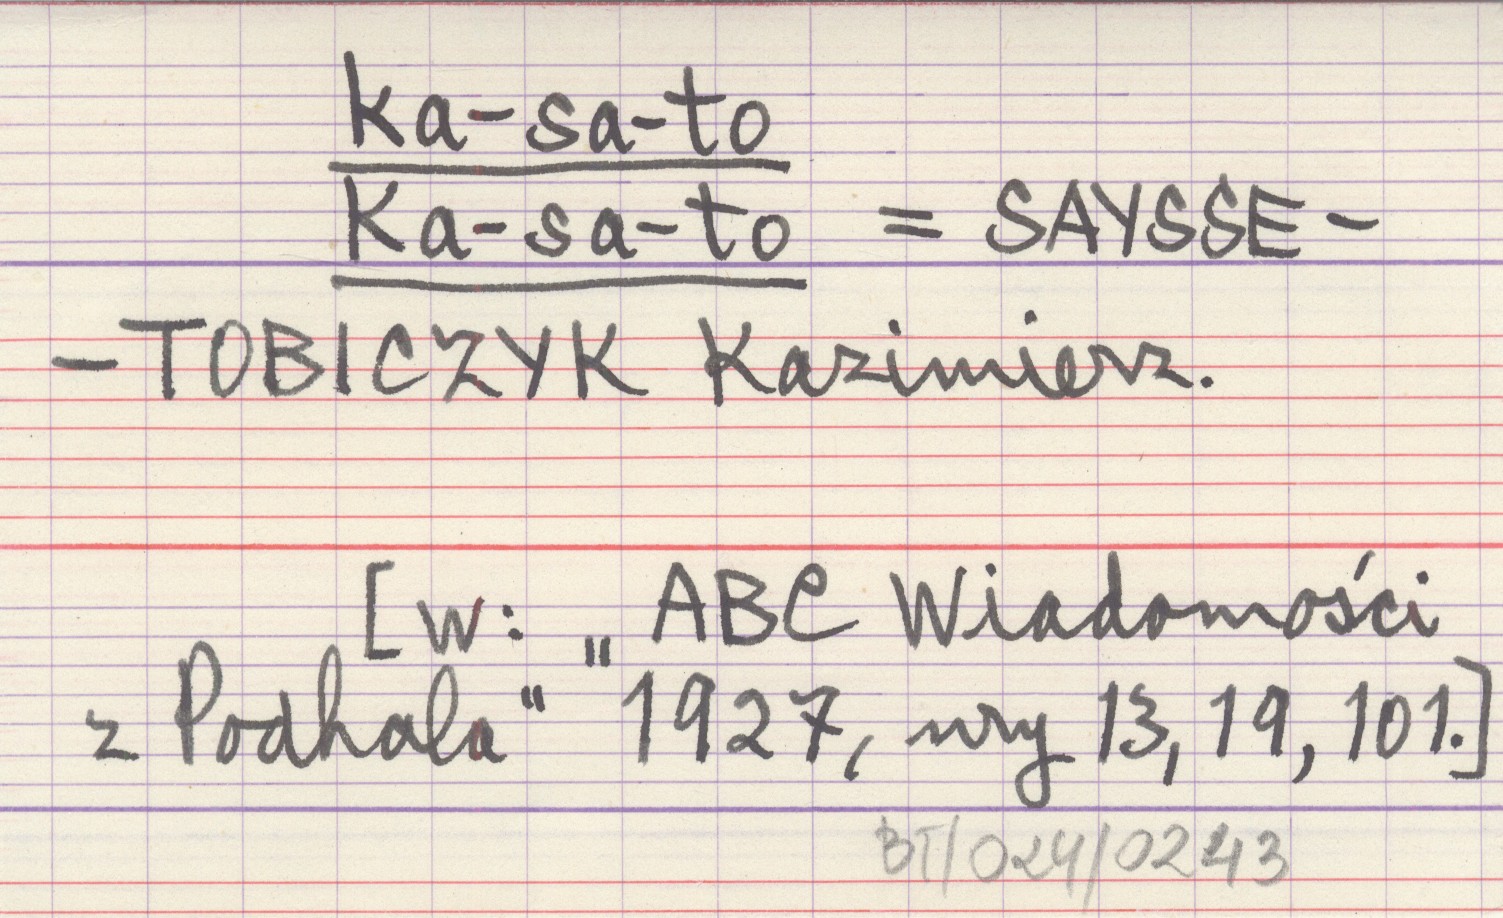 ka-sa-to
Ka-sa-to = SAYSSE-
-TOBICZYK Kazimierz.
[w: „ABC Wiadomości
z Podhala" 1927, nry 13, 19, 101.]
BT/024/0243